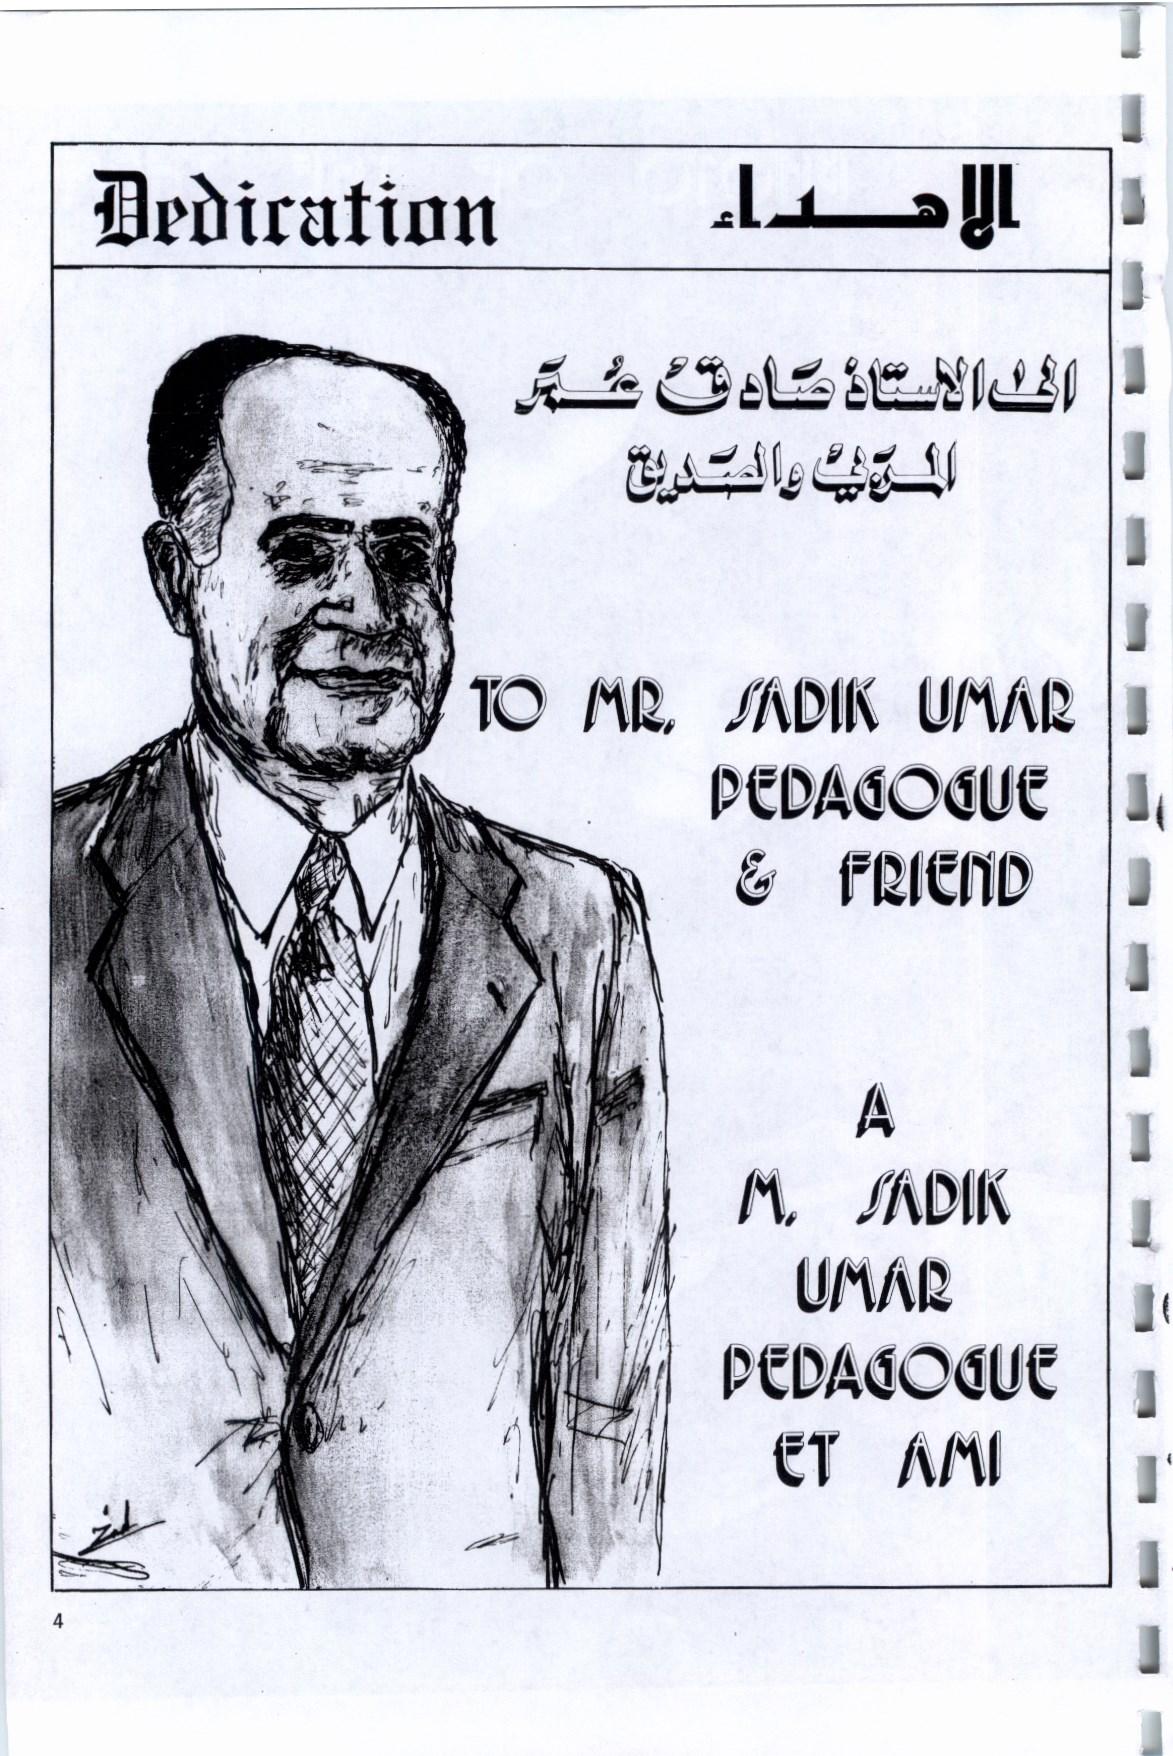 Dedication
الاهداء
الى الاستاذ صَادقْ عُمَر
المرَبيْ والصَديق
TO MR. SADIK UMAR
PEDAGOGUE
& FRIEND
A
M. SADIK
UMAR
PEDAGOGUE
ET AMI
4